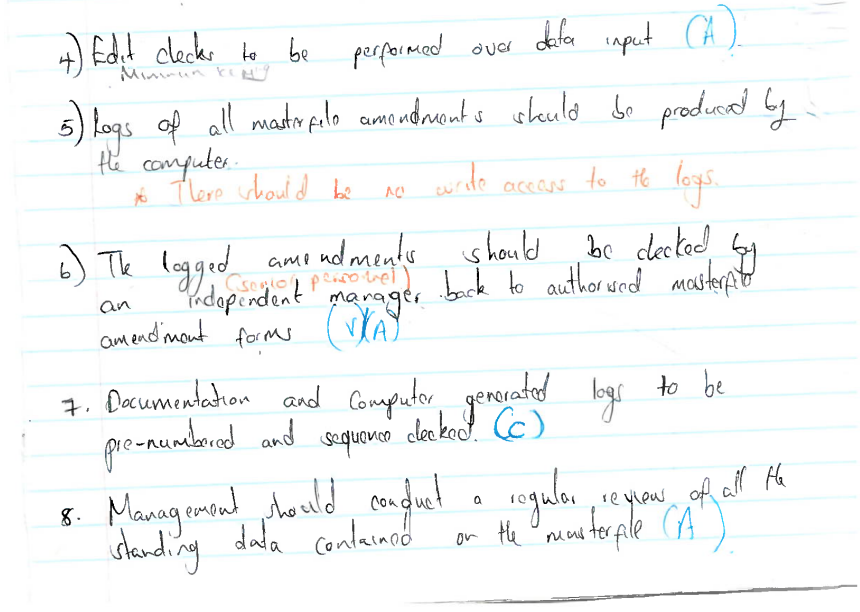 4) Edit checks to be performed over data input (A)
Minimum
5) Logs of all masterfile amendments should be produced by
the computer.
* There should be no write access to the logs.
6) The logged amendments should be checked by
(senior personnel)
an independent manager back to authorised masterfile
amendment forms (V)(A)
7. Documentation and Computer generated logs to be
pre-numbered and sequence checked. (C)
8. Management should conduct a regular review of all the
standing data contained on the masterfile (A)